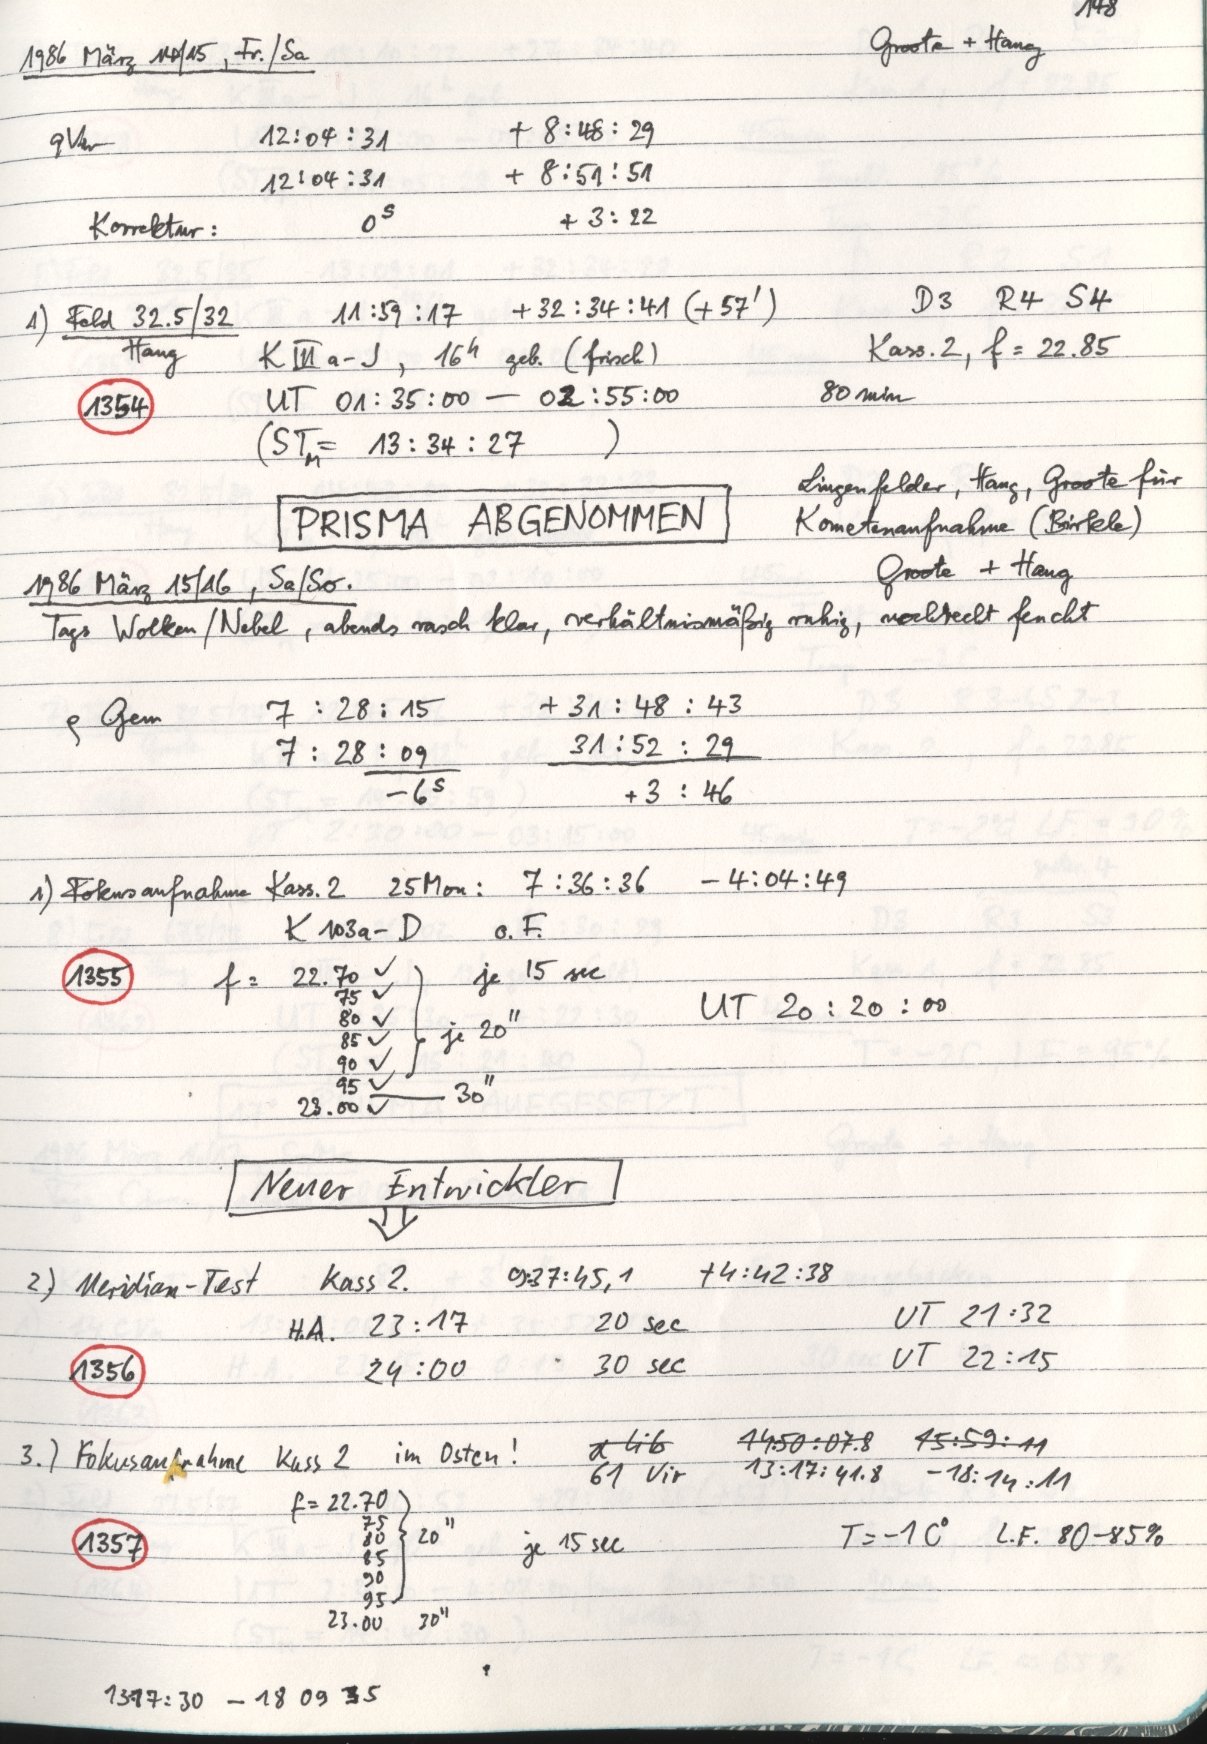 148
1986 März 14/15, Fr./Sa Groote + Haug
9 Vir 12:04:31 + 8:48:29
12:04:31 + 8:51:51
Korrektur: 0s + 3:22
1) Feld 32.5/32 11:59:17 +32:34:41 (+57') D3 R4 S4
Haug K III a-J, 16h geb. (frisch) Kass. 2, f = 22.85
1354 UT 01:35:00 — 02:55:00 80 min
(STM = 13:34:27 )
PRISMA ABGENOMMEN Lingenfelder, Haug, Groote für
Kometenaufnahme (Birkle)
1986 März 15/16, Sa/So. Groote + Haug
Tags Wolken/Nebel, abends rasch klar, verhältnismäßig ruhig, noch recht feucht
ρ Gem 7:28:15 + 31:48:43
7:28:09 31:52:29
-6s +3:46
1) Fokusaufnahme Kass. 2 25 Mon: 7:36:36 - 4:04:49
K 103a-D o.F.
1355 f = 22.70 ✓ je 15 sec
75 ✓
80 ✓ UT 20:20:00
85 ✓ je 20"
90 ✓
95 ✓
23.00 ✓ 30"
Neuer Entwickler
2) Meridian-Test Kass 2. 9:37:45,1 +4:42:38
H.A. 23:17 20 sec UT 21:32
1356 24:00 30 sec UT 22:15
3.) Fokusaufnahme Kass 2 im Osten! α Lib 14:50:07.8 15:59:11
61 Vir 13:17:41.8 -18:14:11
f = 22.70
75
1357 80 20" je 15 sec T = -1 C° L.F. 80-85%
85
90
95
23.00 30"
1317:30 - 18 09 35